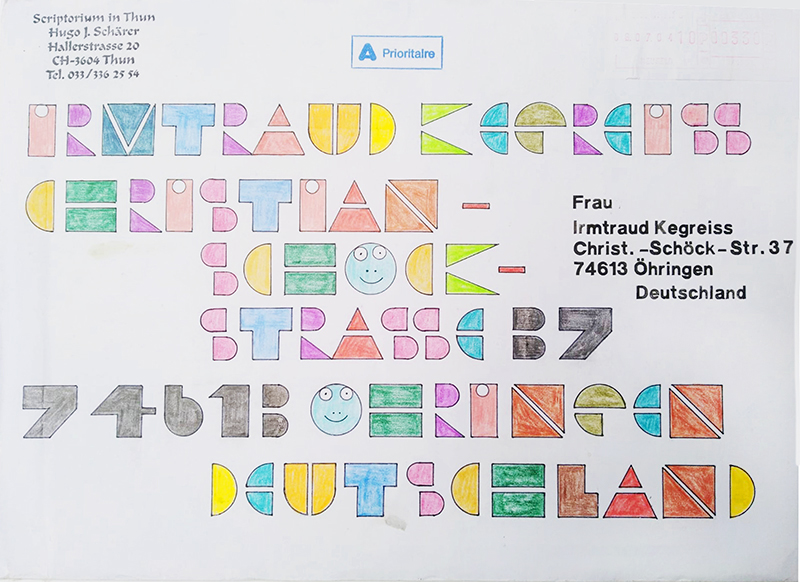 Scriptorium in Thun
Hugo J. Schärer
Hallerstrasse 20
CH-3604 Thun
Tel. 033/336 25 54
A Prioritaire
IRMTRAUD KEGREISS
CHRISTIAN -
SCHÖCK-
STRASSE 37
74613 ÖHRINGEN
DEUTSCHLAND
Frau
Irmtraud Kegreiss
Christ. -Schöck-Str. 37
74613 Öhringen
Deutschland